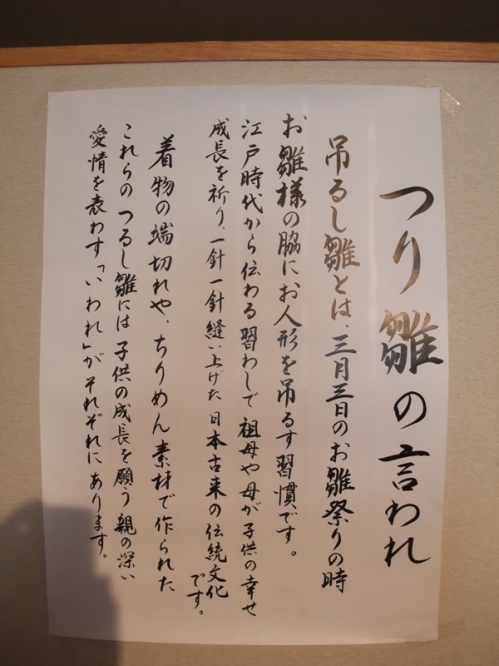 つり雛の言われ
吊るし雛とは、三月三日のお雛祭りの時
お雛様の脇にお人形を吊るす習慣です。
江戸時代から伝わる習わしで祖母や母が子供の幸せ
成長を祈り、一針一針縫い上げた日本古来の伝統文化です。
着物の端切れや、ちりめん素材で作られた
これらのつるし雛には子供の成長を願う親の深い
愛情を表わす「いわれ」がそれぞれにあります。